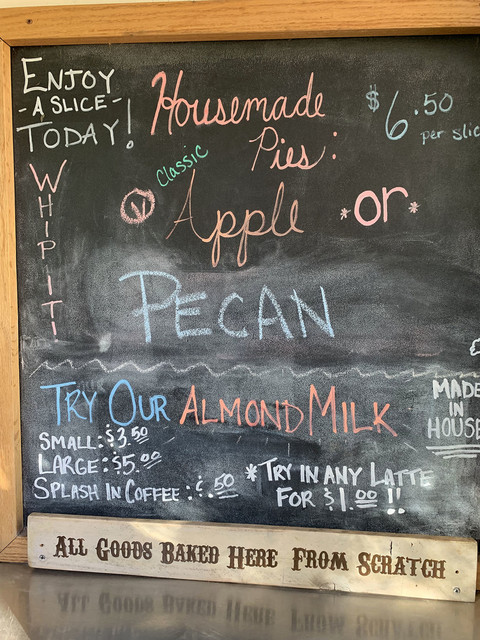 ENJOY
-A SLICE-
TODAY!
WHIP IT!
Housemade
Pies:
$6.50
per slic
Classic
V Apple *or*
PECAN
TRY OUR ALMOND MILK
SMALL: $3.50
LARGE: $5.00
SPLASH IN COFFEE: ¢.50
*TRY IN ANY LATTE
FOR $1.00 !!
MADE
IN
HOUSE
ALL GOODS BAKED HERE FROM SCRATCH